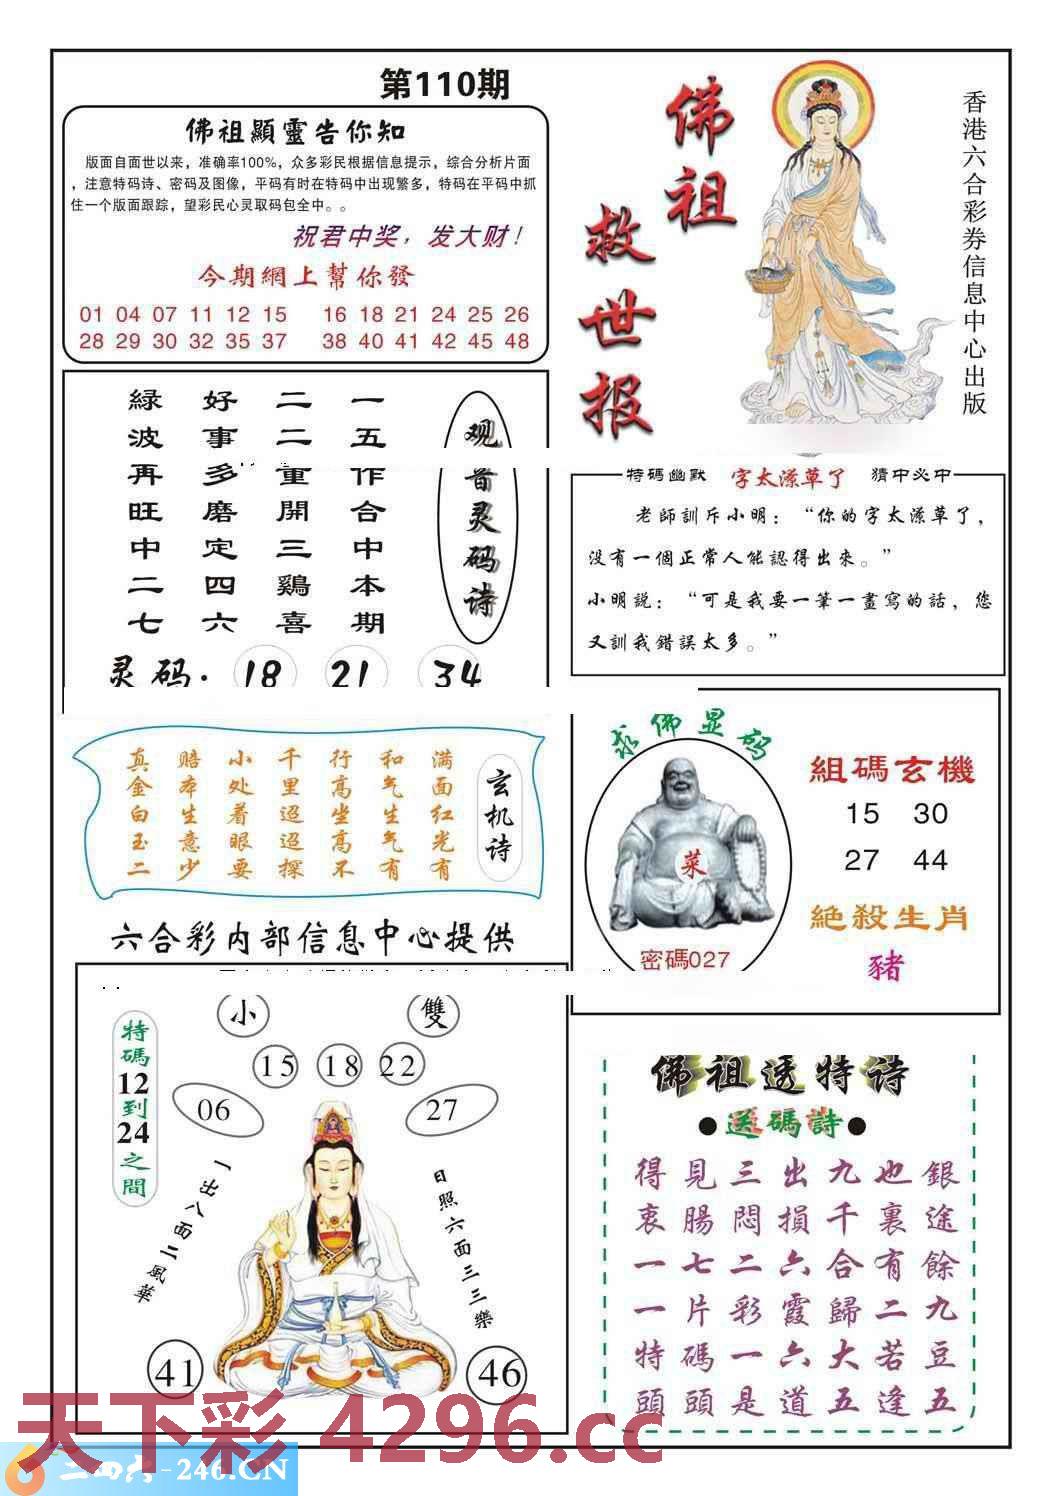 第110期
佛祖顯靈告你知
版面自面世以来，准确率100%，众多彩民根据信息提示，综合分析片面
，注意特码诗、密码及图像，平码有时在特码中出现繁多，特码在平码中抓
住一个版面跟踪，望彩民心灵取码包全中。。
祝君中奖，发大财！
今期網上幫你發
01 04 07 11 12 15 16 18 21 24 25 26
28 29 30 32 35 37 38 40 41 42 45 48
佛祖
救世报
香港六合彩券信息中心出版
观音灵码诗
一五作合中本期
二二重開三鷄喜
好事多磨定四六
緑波再旺中二七
灵码. 18 21 34
特碼幽默 字太潦草了 猜中必中
老師訓斥小明：“你的字太潦草了，
没有一個正常人能認得出來。”
小明説：“可是我要一筆一畫寫的話，您
又訓我錯誤太多。”
玄机诗
满面红光有
和气生气有
行高坐高不
千里迢迢探
小处着眼要
赔本生意少
真金白玉二
求佛显码
菜
密碼027
組碼玄機
15 30
27 44
絶殺生肖
豬
六合彩内部信息中心提供
特碼12到24之間
小 雙
15 18 22
06 27
一出八面二風華
日照六面三三樂
41 46
佛祖透特诗
●送碼詩●
得見三出九也銀
衷腸悶損千裏途
一七二六合有餘
一片彩霞歸二九
特碼一六大若豆
頭頭是道五逢五
天下彩 4296.cc
二四六-246.CN